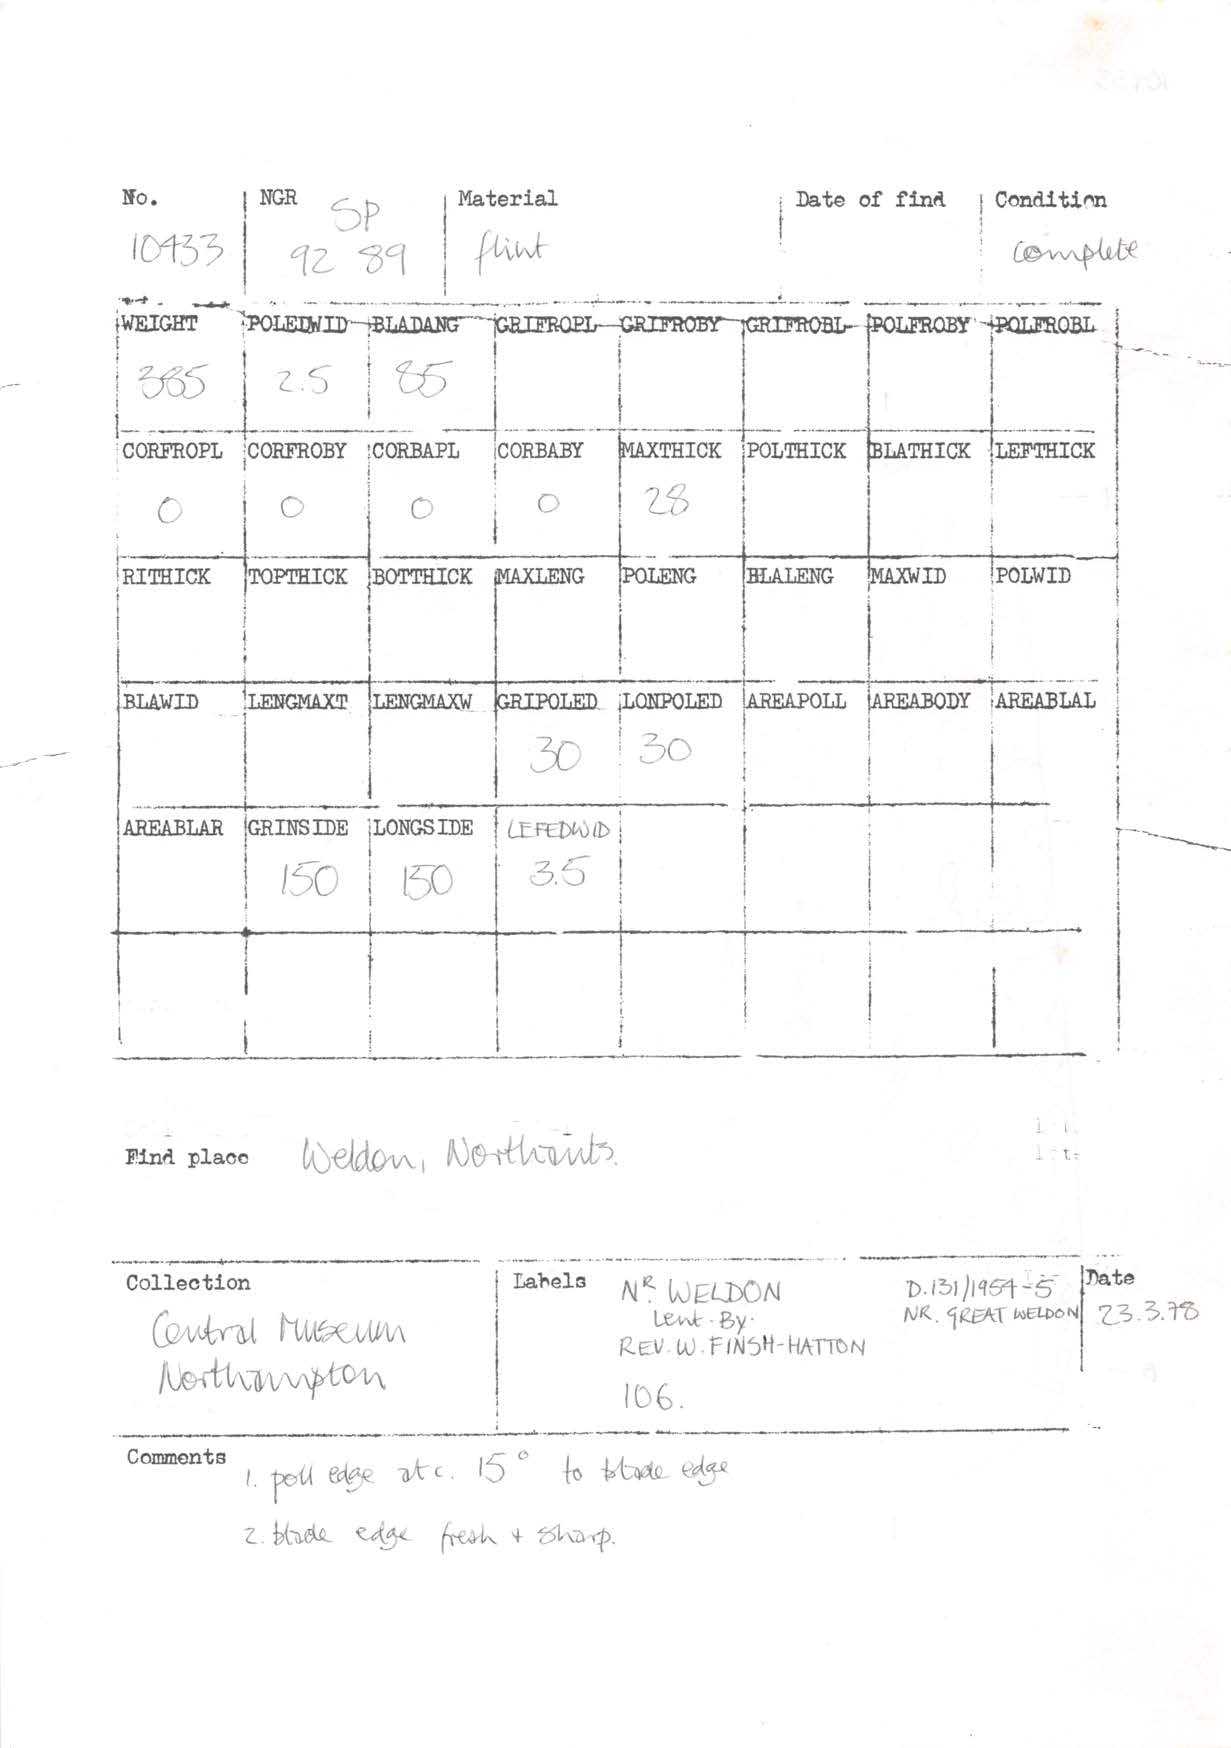 No. NGR Material Date of find Condition
SP
10433 92 89 flint complete
WEIGHT POLEDWID BLADANG GRIFROPL GRIFROBY GRIFROBL POLFROBY POLFROBL
385 2.5 85
CORFROPL CORFROBY CORBAPL CORBABY MAXTHICK POLTHICK BLATHICK LEFTHICK
0 0 0 0 28
RITHICK TOPTHICK BOTTHICK MAXLENG POLENG BLALENG MAXWID POLWID
BLAWID LENGMAXT LENGMAXW GRIPOLED LONPOLED AREAPOLL AREABODY AREABLAL
30 30
AREABLAR GRINSIDE LONGSIDE LEFEDWID
150 150 3.5
Find place Weldon, Northants.
Collection
Central Museum
Northampton
Labels NR. WELDON
Lent. By.
REV. W. FINSH-HATTON
106.
D.131/1954-5
NR. GREAT WELDON
Date
23.3.78
Comments
1. poll edge at c. 15° to blade edge
2. blade edge fresh + sharp.